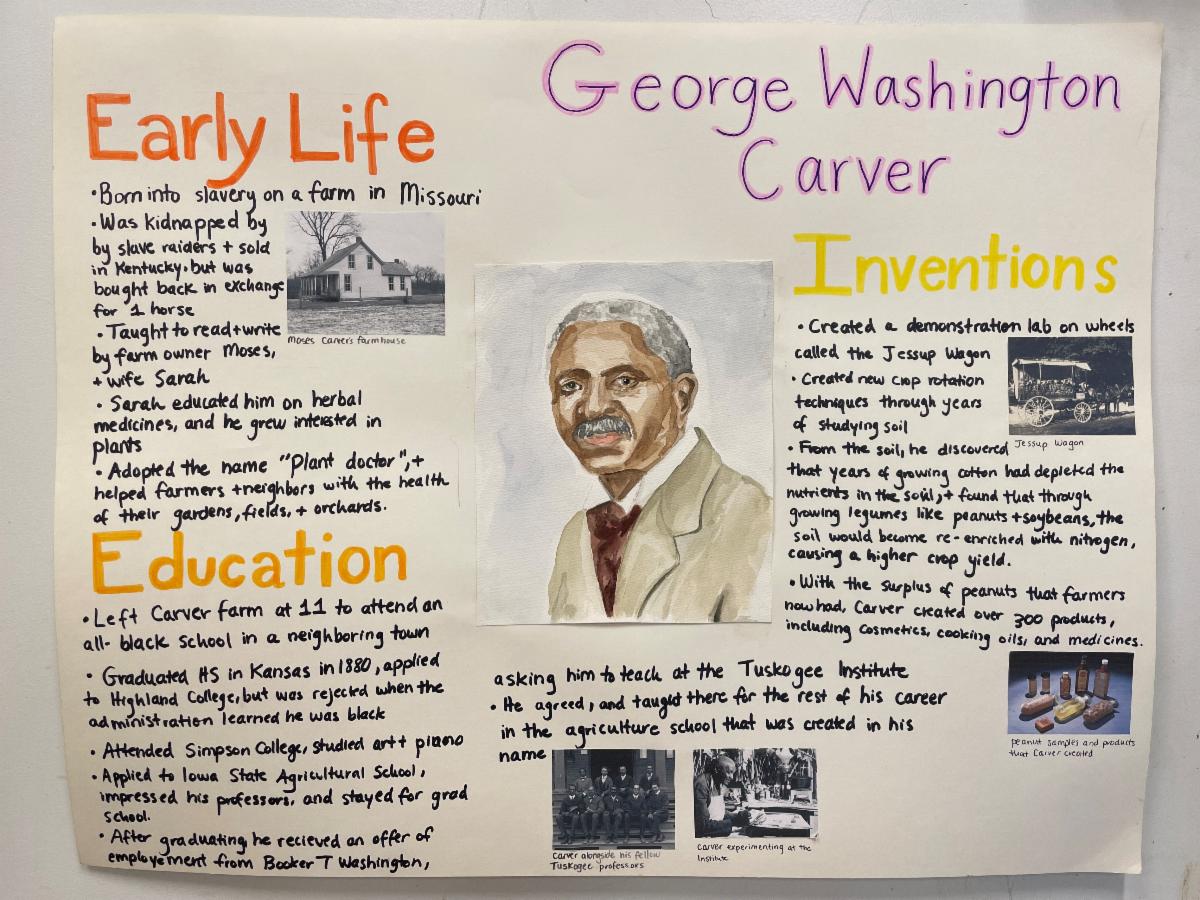 George Washington
Carver
Early Life
•Born into slavery on a farm in Missouri
•Was kidnapped by
by slave raiders + sold
in Kentucky•but was
bought back in exchange
for 1 horse
Moses Carver's farmhouse
•Taught to read+write
by farm owner Moses,
+ wife Sarah
•Sarah educated him on herbal
medicines, and he grew interested in
plants
•Adopted the name "Plant doctor",+
helped farmers +neighbors with the health
of their gardens, fields, + orchards.
Education
•Left Carver farm at 11 to attend an
all-black school in a neighboring town
•Graduated HS in Kansas in 1880, applied
to Highland College, but was rejected when the
administration learned he was black
•Attended Simpson College, studied art+ piano
•Applied to Iowa State Agricultural School,
impressed his professors, and stayed for grad
school.
•After graduating, he recieved an offer of
employement from Booker T Washington,
asking him to teach at the Tuskogee Institute
•He agreed, and taught there for the rest of his career
in the agriculture school that was created in his
name
Carver alongside his fellow
Tuskogee professors
Carver experimenting at the
Institute
Inventions
•Created a demonstration lab on wheels
called the Jessup Wagon
•Created new crop rotation
techniques through years
of studying soil
Jessup Wagon
•From the soil, he discovered
that years of growing cotton had depleted the
nutrients in the soil,+ found that through
growing legumes like peanuts +soybeans, the
soil would become re-enriched with nitrogen,
causing a higher crop yield.
•With the surplus of peanuts that farmers
now had, Carver created over 300 products,
including cosmetics, cooking oils, and medicines.
peanut samples and products
that Carver created